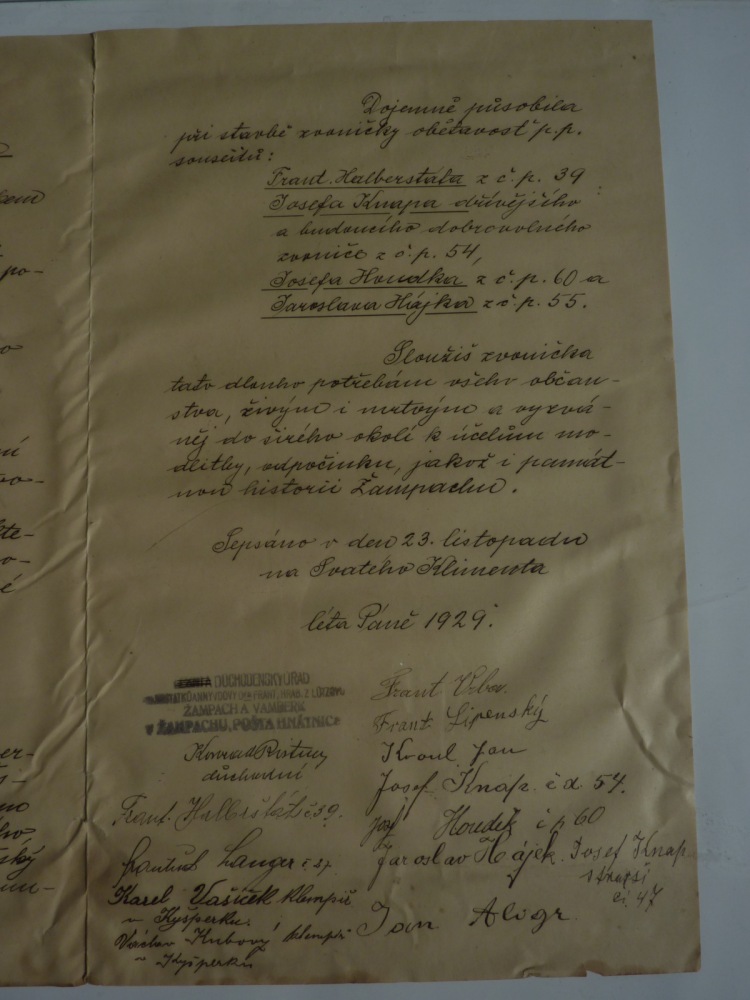 Dojemně působila
při stavbě zvoničky obětavosť p.p.
sousedů:
Frant. Halberstáta z č.p. 39
Josefa Knapa dřívějšího
a budoucího dobrovolného
zvoníče z č.p. 54,
Josefa Houdka z č.p. 60 a
Jaroslava Hájka z č.p. 55.
Sloužiš zvonička
tato dlouho potřebám všeho občan-
stva, živým i mrtvým a vyzvá-
něj do širého okolí k účelům mo-
dlitby, odpočinku, jakož i památ-
nou historii Žampachu.
Sepsáno v den 23. listopadu
na Svatého Klimenta
léta Páně 1929.
DŮCHODENSKÝ ÚŘAD
FRANT. HRAB. Z LÜTZOWŮ
ŽAMPACH A VAMBERK
V ŽAMPACHU, POŠTA HNÁTNICE
Konrad
důchodní
Frant. Halberštát č 39.
Langer
Karel Vašíček klempíř
v Kyšperku.
Václav Kubový klempíř
v Kyšperku
Frant Vrba.
Frant. Lipenský
Kroul Jan
Josef Knap. č d. 54.
Josef Houdek č p 60
Jaroslav Hájek. Josef Knap
starší
či. 47
Jan Aligr